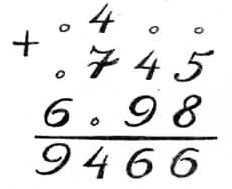 + . 4 . .
. 7 4 5
6 . 9 8
9 4 6 6